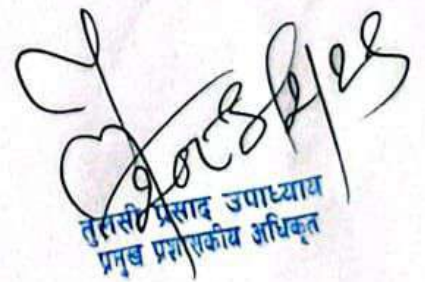 तुलसी प्रसाद उपाध्याय
प्रमुख प्रशासकीय अधिकृत